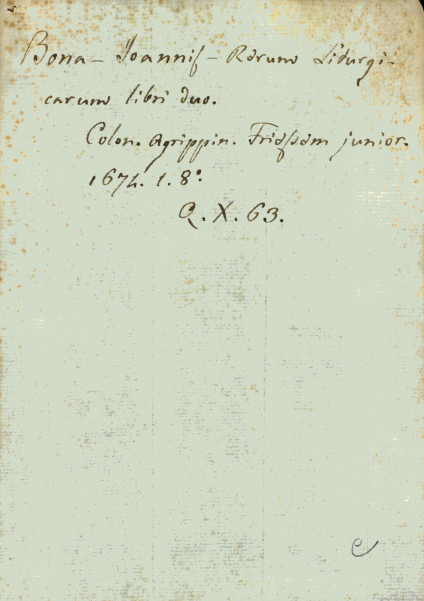 Bona - Joannis - Rerum Liturgi-
carum libri duo.
Colon. Agrippin. Friessem junior.
1674. 1. 8º.
Q. X. 63.